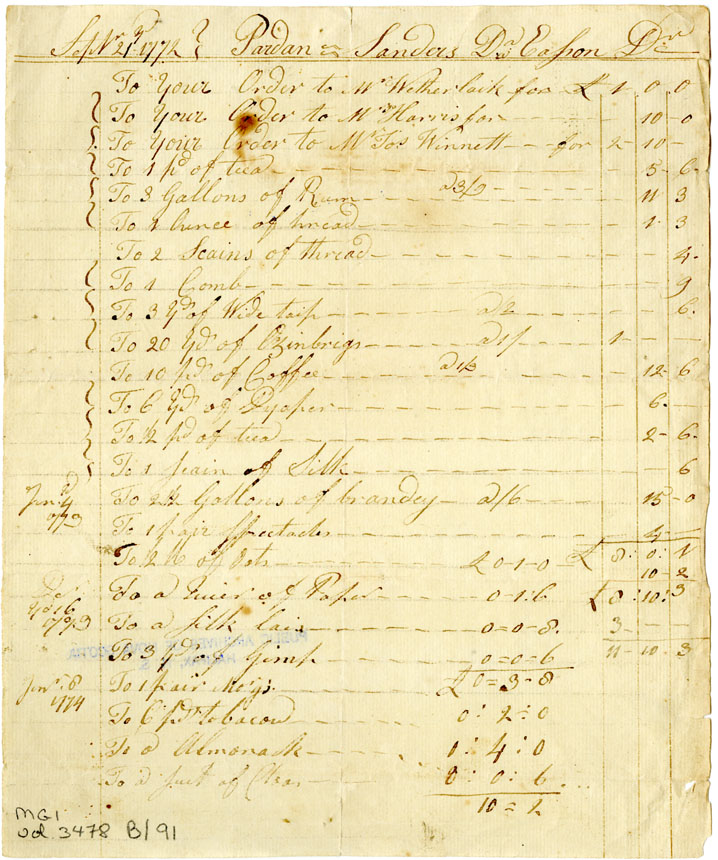 Sepr 21d 1772 } Pardan Sanders Dr Easson Dr
To Your Order to Mr Wetherlaik for £ 1 0 0
To Your Order to Mr Harris for 10 - 0
To Your Order to Mr Jos Winnett -- for 2 - 10 -
To 1 pd of tea 5 - 6
To 3 Gallons of Rum a 3/9 11 3
To 1 Ounce of thread 1 - 3
To 2 Scains of thread 4
To 1 Comb 9
To 3 Yds of Wide taip a 2 6
To 20 Yds of Ozinbrigs a 1/ 1 -
To 10 pds of Coffee a 1/3 12 6
To 6 Yds of Dyaper 6 -
To ½ pd of tea 2 - 6
To 1 scain of Silk 6
Jnr 4d 1773 To 2½ Gallons of brandey a /6 15 - 0
To 1 pair Spectacles 4 -
To 2 lb of 0-1-0 £ 8 : 0 : 1
10 2
To a Quier of Paper 0-1:6 £ 8 : 10 : 3
16 1773 To a Silk 0=0-8 3 -
To 3 Yds of Gimp 0=0=6 11 - 10 - 3
£ 0=3=8
Jnr 18 1774 To 1 pair
To 6 pds tobacow 0 : 2 : 0
To a Almonack 1 : 4 : 0
To a of 0 : 0 : 6
10 = 2
PUBLIC ARCHIVES OF NOVA SCOTIA
HALIFAX, N. S.
MG1
vol. 3478 B/91